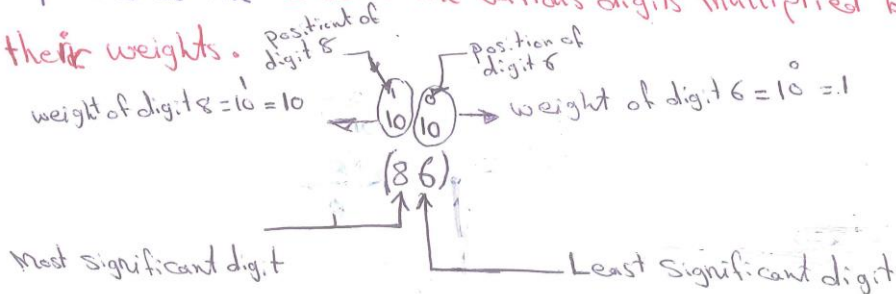 various digits multiplied
their weights.
positiont of
digit 8
position of
digit 6
weight of digit 8 = 10¹ = 10
10¹ 10⁰
weight of digit 6 = 10⁰ = 1
(86)
Most significant digit
Least significant digit